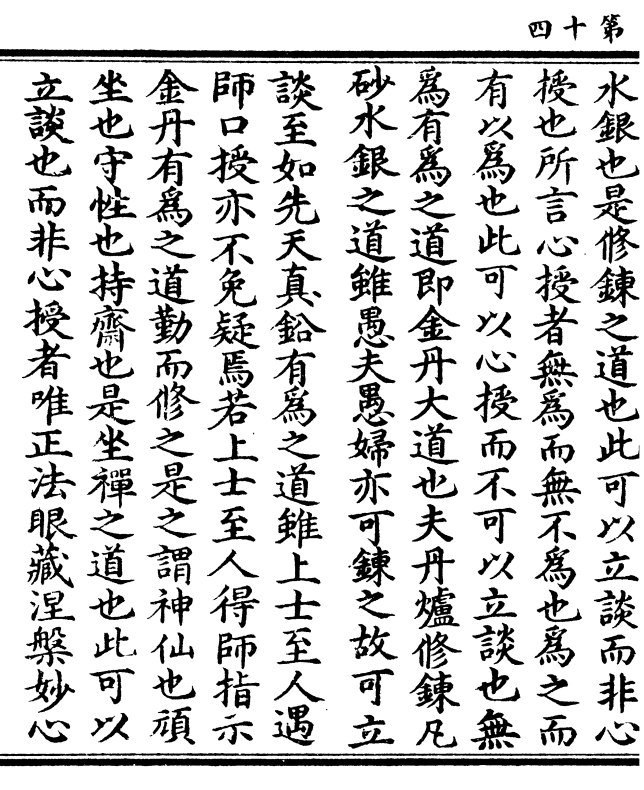 第十四
水銀也是修鍊之道也此可以立談而非心
授也所言心授者無為而無不為也為之而
有以為也此可以心授而不可以立談也無
為有為之道即金丹大道也夫丹爐修鍊凡
砂水銀之道雖愚夫愚婦亦可鍊之故可立
談至如先天真鉛有為之道雖上士至人遇
師口授亦不免疑焉若上士至人得師指示
金丹有為之道勤而修之是之謂神仙也頑
坐也守性也持齋也是坐禪之道也此可以
立談也而非心授者唯正法眼藏涅槃妙心